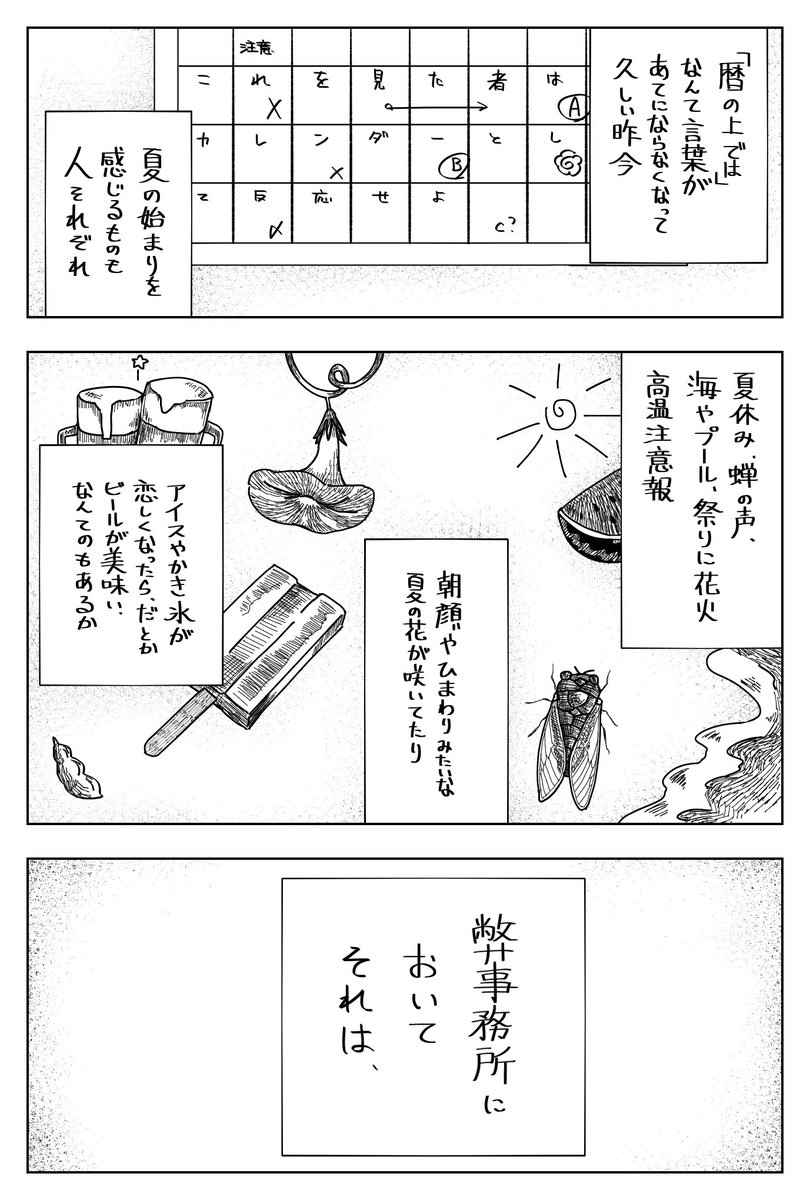 「暦の上では」
なんて言葉が
あてにならなくなって
久しい昨今
注意
これを見た者は
X
A
カレンダーとし
X
B
て反応せよ
X
C?
夏の始まりを
感じるものも
人それぞれ
夏休み、蝉の声、
海やプール、祭りに花火
高温注意報
朝顔やひまわりみたいな
夏の花が咲いてたり
アイスやかき氷が
恋しくなったら、だとか
ビールが美味い、
なんてのもあるか
弊事務所に
おいて
それは、